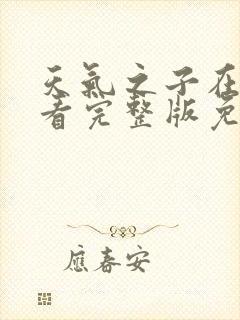 天氣之子在
看完整版免
應春安